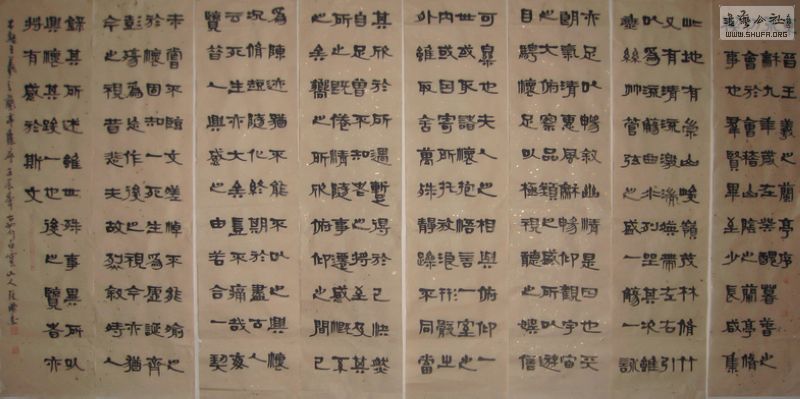 晉王羲之蘭亭序
永和九年歲在癸丑暮春之
初會於會稽山陰之蘭亭脩
禊事也羣賢畢至少長咸集
此地有崇山峻嶺茂林脩竹
又有清流激湍映帶左右引
以為流觴曲水列坐其次雖
無絲竹管弦之盛一觴一詠
亦足以暢敘幽情是日也天
朗氣清惠風和暢仰觀宇宙
之大俯察品類之盛所以遊
目騁懷足以極視聽之娛信
可樂也夫人之相與俯仰一
世或取諸懷抱悟言一室之
內或因寄所託放浪形骸之
外雖取舍萬殊靜躁不同當
其欣於所遇暫得於己快然
自足曾不知老之將至及其
所之既倦情隨事遷感慨係
之矣嚮之所欣俯仰之間已
為陳迹猶不能不以之興懷
況脩短隨化終期於盡古人
云死生亦大矣豈不痛哉每
覽昔人興感之由若合一契
未嘗不臨文嗟悼不能喻之
於懷固知一死生為虛誕齊
彭殤為妄作後之視今亦猶
今之視昔悲夫故列敘時人
錄其所述雖世殊事異所以
興懷其致一也後之覽者亦
將有感於斯文
WWW.SHUFA.ORG